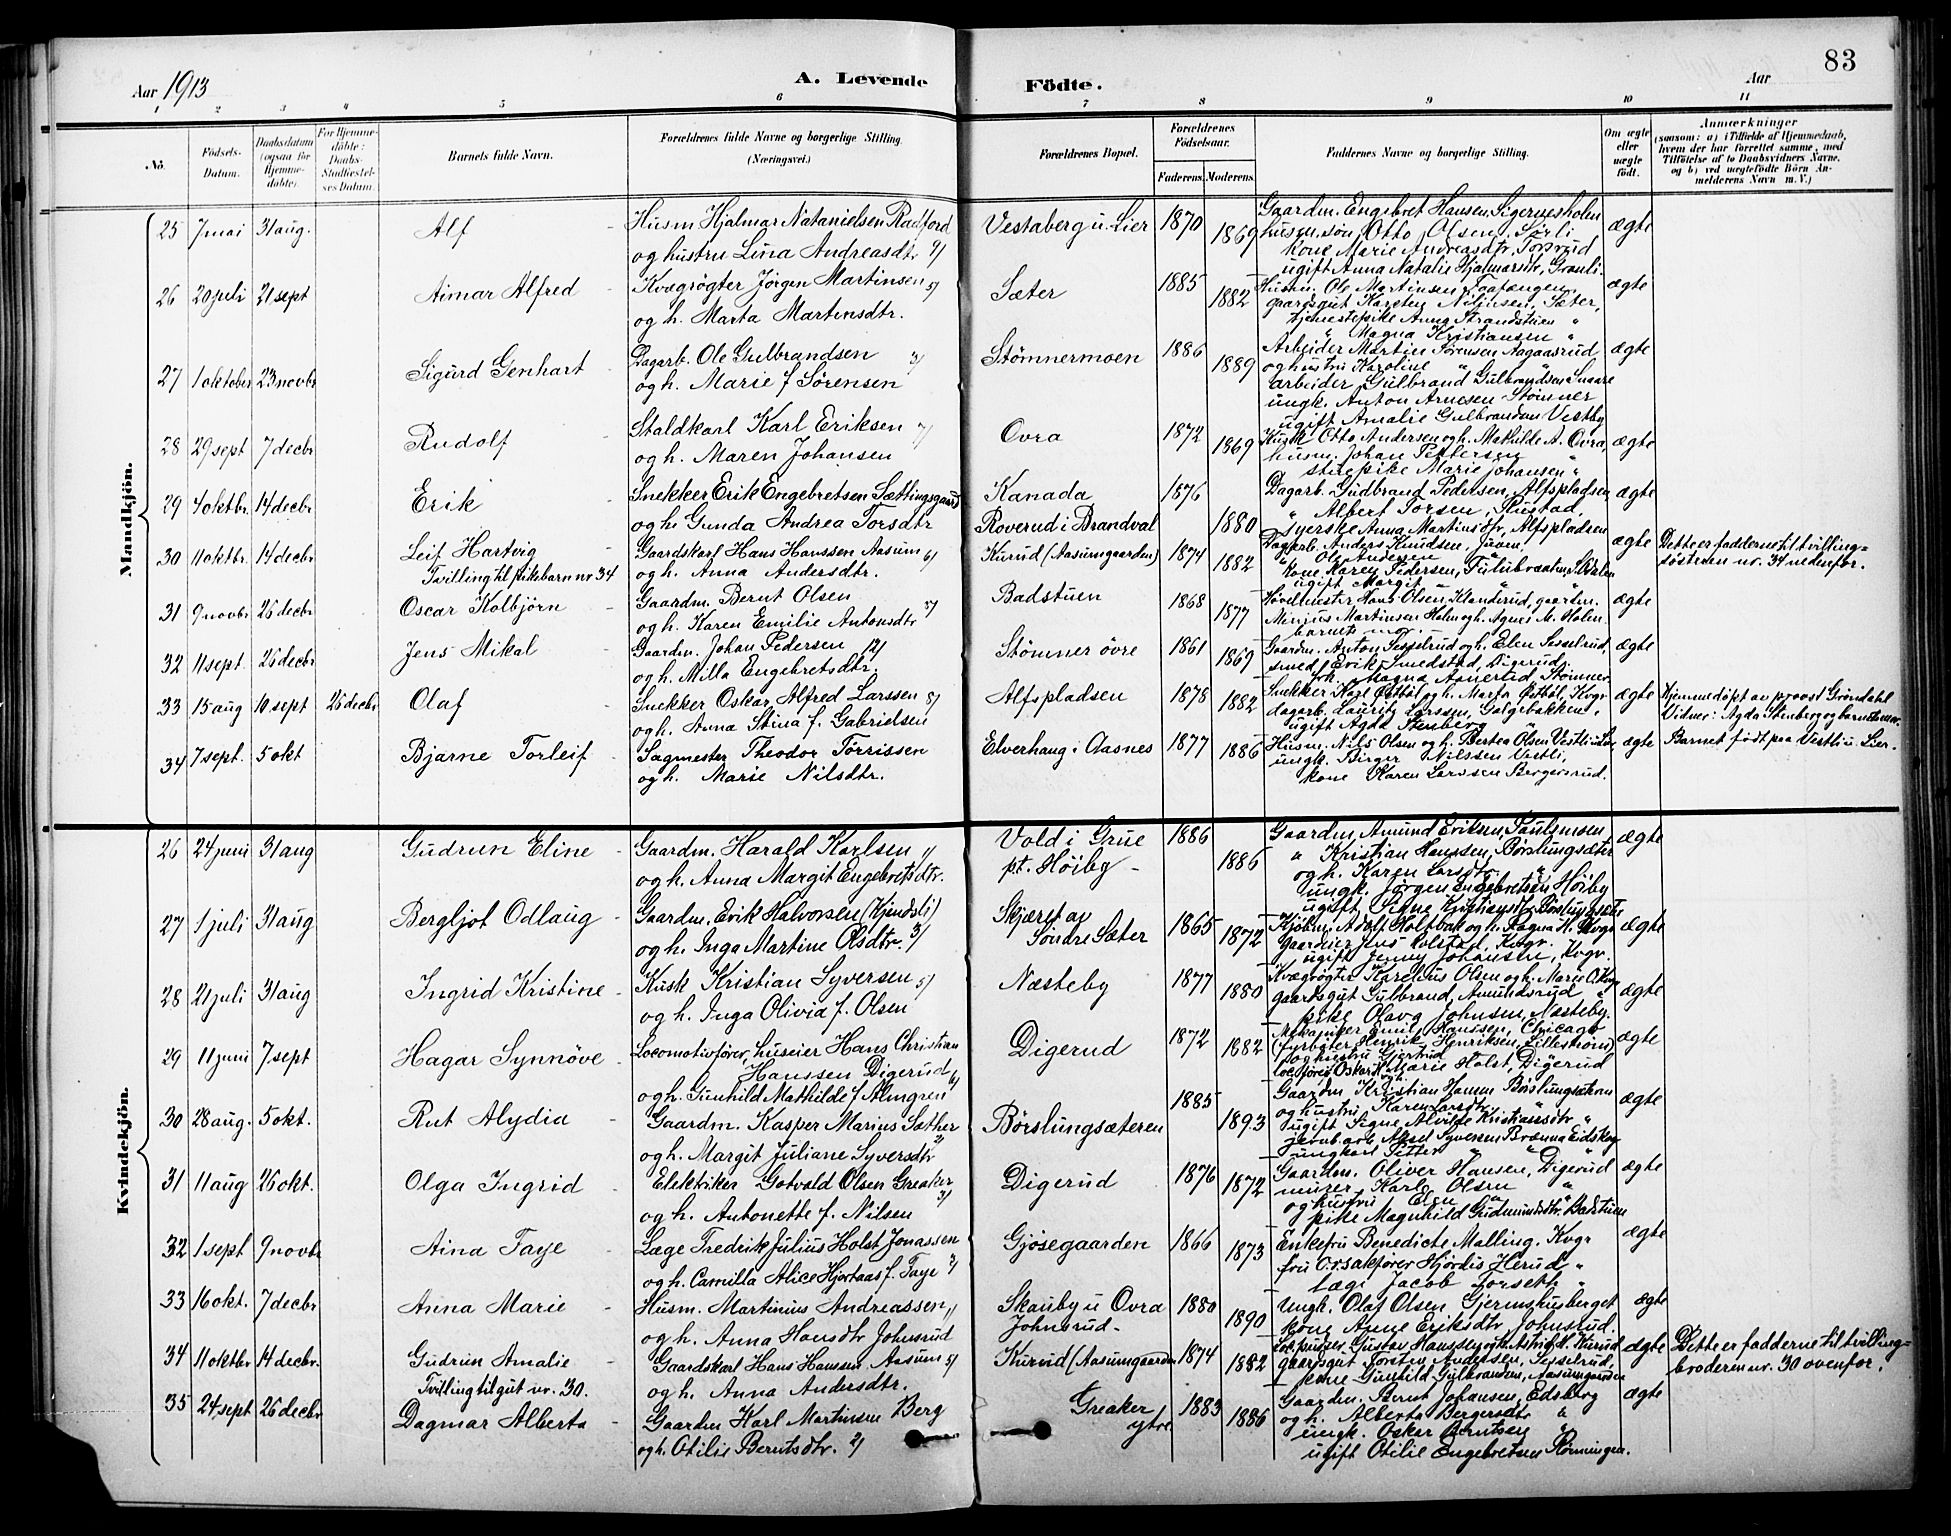 83
Aar 1913
A. Levende
Födte.
Aar
1 2 3 4 5 6 7 8 9 10 11
No.
Födsels-Datum.
Daabsdatum (ogsaa for Hjemmedöbte).
For Hjemmedöbte: Daabs-Stadfæstelses Datum.
Barnets fulde Navn.
Forældrenes fulde Navne og borgerlige Stilling.
(Næringsvei.)
Forældrenes Bopæl.
Forældrenes Födselsaar.
Faderens. Moderens.
Faddernes Navne og borgerlige Stilling.
Om ægte eller uægte födt.
Anmærkninger
(saasom: a) i Tilfælde af Hjemmedaab, hvem der har forrettet samme, med Tilföielse af to Daabsvidners Navne, og b) ved uægtefödte Börn Anmelderens Navn m. V.)
Mandkjön.
25 7 mai 31 aug. Alf
Husm Hjalmar Natanielsen Radford
og hustru Lina Andreasdtr 9/
Vestaberg u. Lier 1870 1869
Gaardm. Engebret Hansen, Sigernesholm
husm. søn Otto Olsen, Sørli
kone Marie Andreasdtr, Toprud
ugift Anna Natalie Hjalmarsdtr, Granli.
ægte
26 20 juli 21 sept Aimar Alfred
Kvægrøgter Jörgen Martinsen 5/
og h. Marta Martinsdtr.
Sæter 1885 1882
Husm. Ole Martinsen
gaardsgut Karsten Nilsen, Sæter,
tjenestepike Anna Strandstuen "
" Magna Kristiansen "
ægte
27 1 oktober 23 novbr Sigurd Genhart
Dagarb. Ole Gulbrandsen 3/
og h. Marie f. Sörensen
Stömnermoen 1886 1889
Arbeider Martin Sørensen Aagaasrud
og hustru Karoline " "
arbeider Gulbrand Gulbrandsen Snaare
ungk. Anton Arnesen Stömner
ugift Amalie Gulbrandsen Vestby
ægte
28 29 sept 7 decbr Rudolf
Staldkarl Karl Eriksen 7/
og h. Maren Johansen
Ovra 1872 1869
Kusk Otto Andersen og h. Mathilde A. Ovra,
husm. Johan Pettersen "
pike Marie Johansen "
ægte
29 4 oktbr. 14 decbr Erik
Snekker Erik Engebretsen Sætlingsgaard
og h. Gunda Andrea Torsdtr
Kanada
Roverud i Brandval 1876 1880
Dagarb. Gudbrand Pedersen, Alfspladsen
" Albert Torsen, Rustad,
syerske Anna Martinsdtr, Alfspladsen
ægte
30 11 oktbr. 14 decbr. Leif Hartvig
Tvilling til pikebarn nr. 34
Gaardskarl Hans Hanssen Aasum 6/
og h. Anna Andersdtr.
Kurud (Aasumgaarden) 1874 1882
Dagarb. Anders Knudsen, Juven,
" Ole Andersen "
kone Karen Pedersen,
ugift Margit " "
ægte
Dette er fadderne til tvilling-
söstren nr. 34 nedenfor.
31 9 novbr 26 decbr. Oscar Kolbjörn
Gaardm. Bernt Olsen
og h. Karen Emilie Antonsdtr 3/
Badstuen 1868 1877
Høvelmester Hans Olsen, Klanderud, gaardm.
Minius Martinsen Holm og h. Agnes M. Holm
barnets mor.
ægte
32 11 sept. 26 decbr Jens Mikal
Gaardm. Johan Pedersen 12/
og h. Milla Engebretsdtr.
Stömner övre 1861 1869
Gaardm. Anton Sesselrud og h. Elen Sesselrud,
smed Erik Smedstad, Digerud,
frk. Magna Asnerud Stömner
ægte
33 15 aug 10 sept 26 decbr Olaf
Snekker Oskar Alfred Larssen 8/
og h. Anna Stina f. Gabrielsen
Alfspladsen 1878 1882
Snekker Karl Østbøl og h. Marta Østbøl, Kvgr
dagarb. Lauritz Larssen, Galgebakken,
ugift Agda Stenberg "
ægte
Hjemmedöpt av provst Gröndahl
Vidner: Agda Stenberg og barnets mor.
34 7 sept. 5 okt Bjarne Torleif
Sagmester Theodor Torrissen
og h. Marie Nilsdtr.
Elverhaug i Aasnes 1877 1886
Husm. Nils Olsen og h. Bertea Olsen Vestli u. Lier
ungk. Birger Nilssen Vestli,
kone Karen Larssen Bergersrud.
ægte
Barnet födt paa Vestli u. Lier.
Kvindekjön.
26 24 juni 31 aug Gudrun Eline
Gaardm. Harald Karlsen 1/
og h. Anna Margit Engebretsdtr.
Vold i Grue
pt. Höiby 1886 1886
Gaardm. Amund Eriksen, Paulsmoen
" Kristian Hanssen, Børslungsæter
og h. Karen Larsdtr. "
ungk. Jörgen Engebretsen Höiby
ugift Signe Kristiansdtr. Børslungsæter
ægte
27 1 juli 31 aug Bergljot Odlaug
Gaardm. Erik Halvorsen (Kjendsli)
og h. Inga Martine Olsdtr. 3/
Skjæret av
Söndre Sæter 1865 1872
Kjöbm. Adolf Holtbak og h. Ragna H. Kvgr
Gaardeier Jens Kolstad, Kvgr.
ugift Jenny Johansen, Kvgr.
ægte
28 21 juli 31 aug Ingrid Kristine
Kusk Kristian Syversen 5/
og h. Inga Olivia f. Olsen
Næsteby 1877 1880
Kvægrøgter Karelius Olsen og h. Marie O. Kvgr
gaardsgut Gulbrand Amundsrud "
pike Olava Johnsen, Næsteby.
ægte
29 11 juni 7 sept Hagar Synnöve
Locomotivförer, huseier Hans Christian
Hanssen Digerud 6/
og h. Gunhild Mathilde f. Almgren
Digerud 1872 1882
Mekaniker Emil Hanssen, Chicago
fyrbøter Henrik Henriksen, Lilleström
og hustru Gjertrud
lok. förer Oskar og Marie Holst, Digerud
ægte
30 28 aug. 5 okt. Rut Alydia
Gaardm. Kasper Marius Sæther 2/
og h. Margit Juliane Syversdtr
Börslungsæteren 1885 1893
Gaardm Kristian Hansen Børslungsætran
og hustru Karen Larsdtr "
ugift Signe Alvilde Kristiansdtr "
jernbarb. Aksel Syversen Brænna Eidskog
ungkarl Petter " " "
ægte
31 11 aug 26 okt. Olga Ingrid
Elektriker Gotvald Olsen Greaker 3/
og h. Antonette f. Nilsen
Digerud 1876 1872
Gaardm. Oliver Hansen, Digerud
murer Karl Olsen "
og hustru Elen " "
pike Magnhild Gudmundsdtr. Badstuen
ægte
32 1 sept 9 novbr Aina Faye
Læge Fredrik Julius Holst Jonassen
og h. Camilla Alice Hjortaas f. Faye 7/
Gjøsegaarden 1866 1873
Enkefru Benedicte Malling, Kvgr
fru O.r.sakförer Hjördis Herud, "
læge Jacob Forseth "
ægte
33 16 okt. 7 decbr Anna Marie
Husm. Martinius Andreassen 1/
og h. Anna Hansdtr Johnsrud
Skauby u Ovra
Johnsrud 1880 1890
Ungk. Olaf Olsen Gjermshusberget
kone Anne Eriksdtr Johnsrud.
ægte
34 11 oktbr 14 decbr. Gudrun Amalie
Tvilling til gut nr. 30.
Gaardskarl Hans Hanssen Aasum 5/
og h. Anna Andersdtr.
Kurud (Aasumgaarden 1874 1882
Lokpudser Gustav Hanssen og h. Astrid H. Kurud
gaardsgut Torsten Andersen, Sesselrud,
kone Gunhild Gulbrandsen, Aasumgaarden
ægte
Dette er fadderne til tvilling-
broderen nr. 30 ovenfor.
35 24 sept 26 decbr Dagmar Alberta
Gaardm Karl Martinsen Berg
og h. Otilie Berntsdtr. 2/
Greaker
ytre 1883 1886
Gaardm. Bernt Johansen, Edsberg
og h. Alberta Bergersdtr "
ungk. Oskar Berntsen "
ugift Otilie Engebretsen Rönningen.
ægte